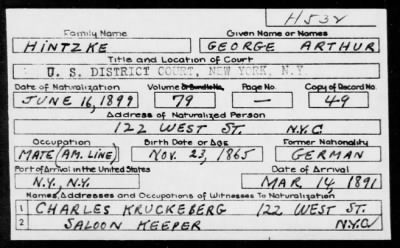 H532
Family Name Given Name or Names
HINTZKE GEORGE ARTHUR
Title and Location of Court
U. S. DISTRICT COURT, NEW YORK, N.Y.
Date of Naturalization Volume or Bundle No. Page No. Copy of Record No.
JUNE 16, 1899 79 — 49
Address of Naturalized Person
122 WEST ST. N.Y.C.
Occupation Birth Date or Age Former Nationality
MATE (AM. LINE) NOV. 23, 1865 GERMAN
Port of Arrival in the United States Date of Arrival
N.Y., N.Y. MAR 14, 1891
Names, Addresses and Occupations of Witnesses To Naturalization
1 CHARLES KRUCKEBERG 122 WEST ST.
2 SALOON KEEPER N.Y.C.